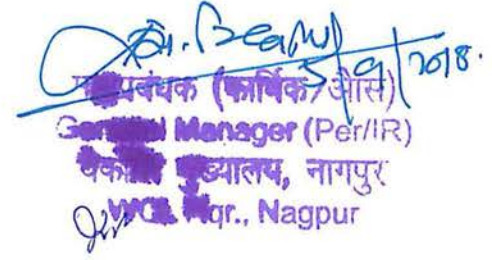 5/9/2018.
महाप्रबंधक (कार्मिक/औसं)
General Manager (Per/IR)
वेकोलि मुख्यालय, नागपुर
WCL Hqr., Nagpur